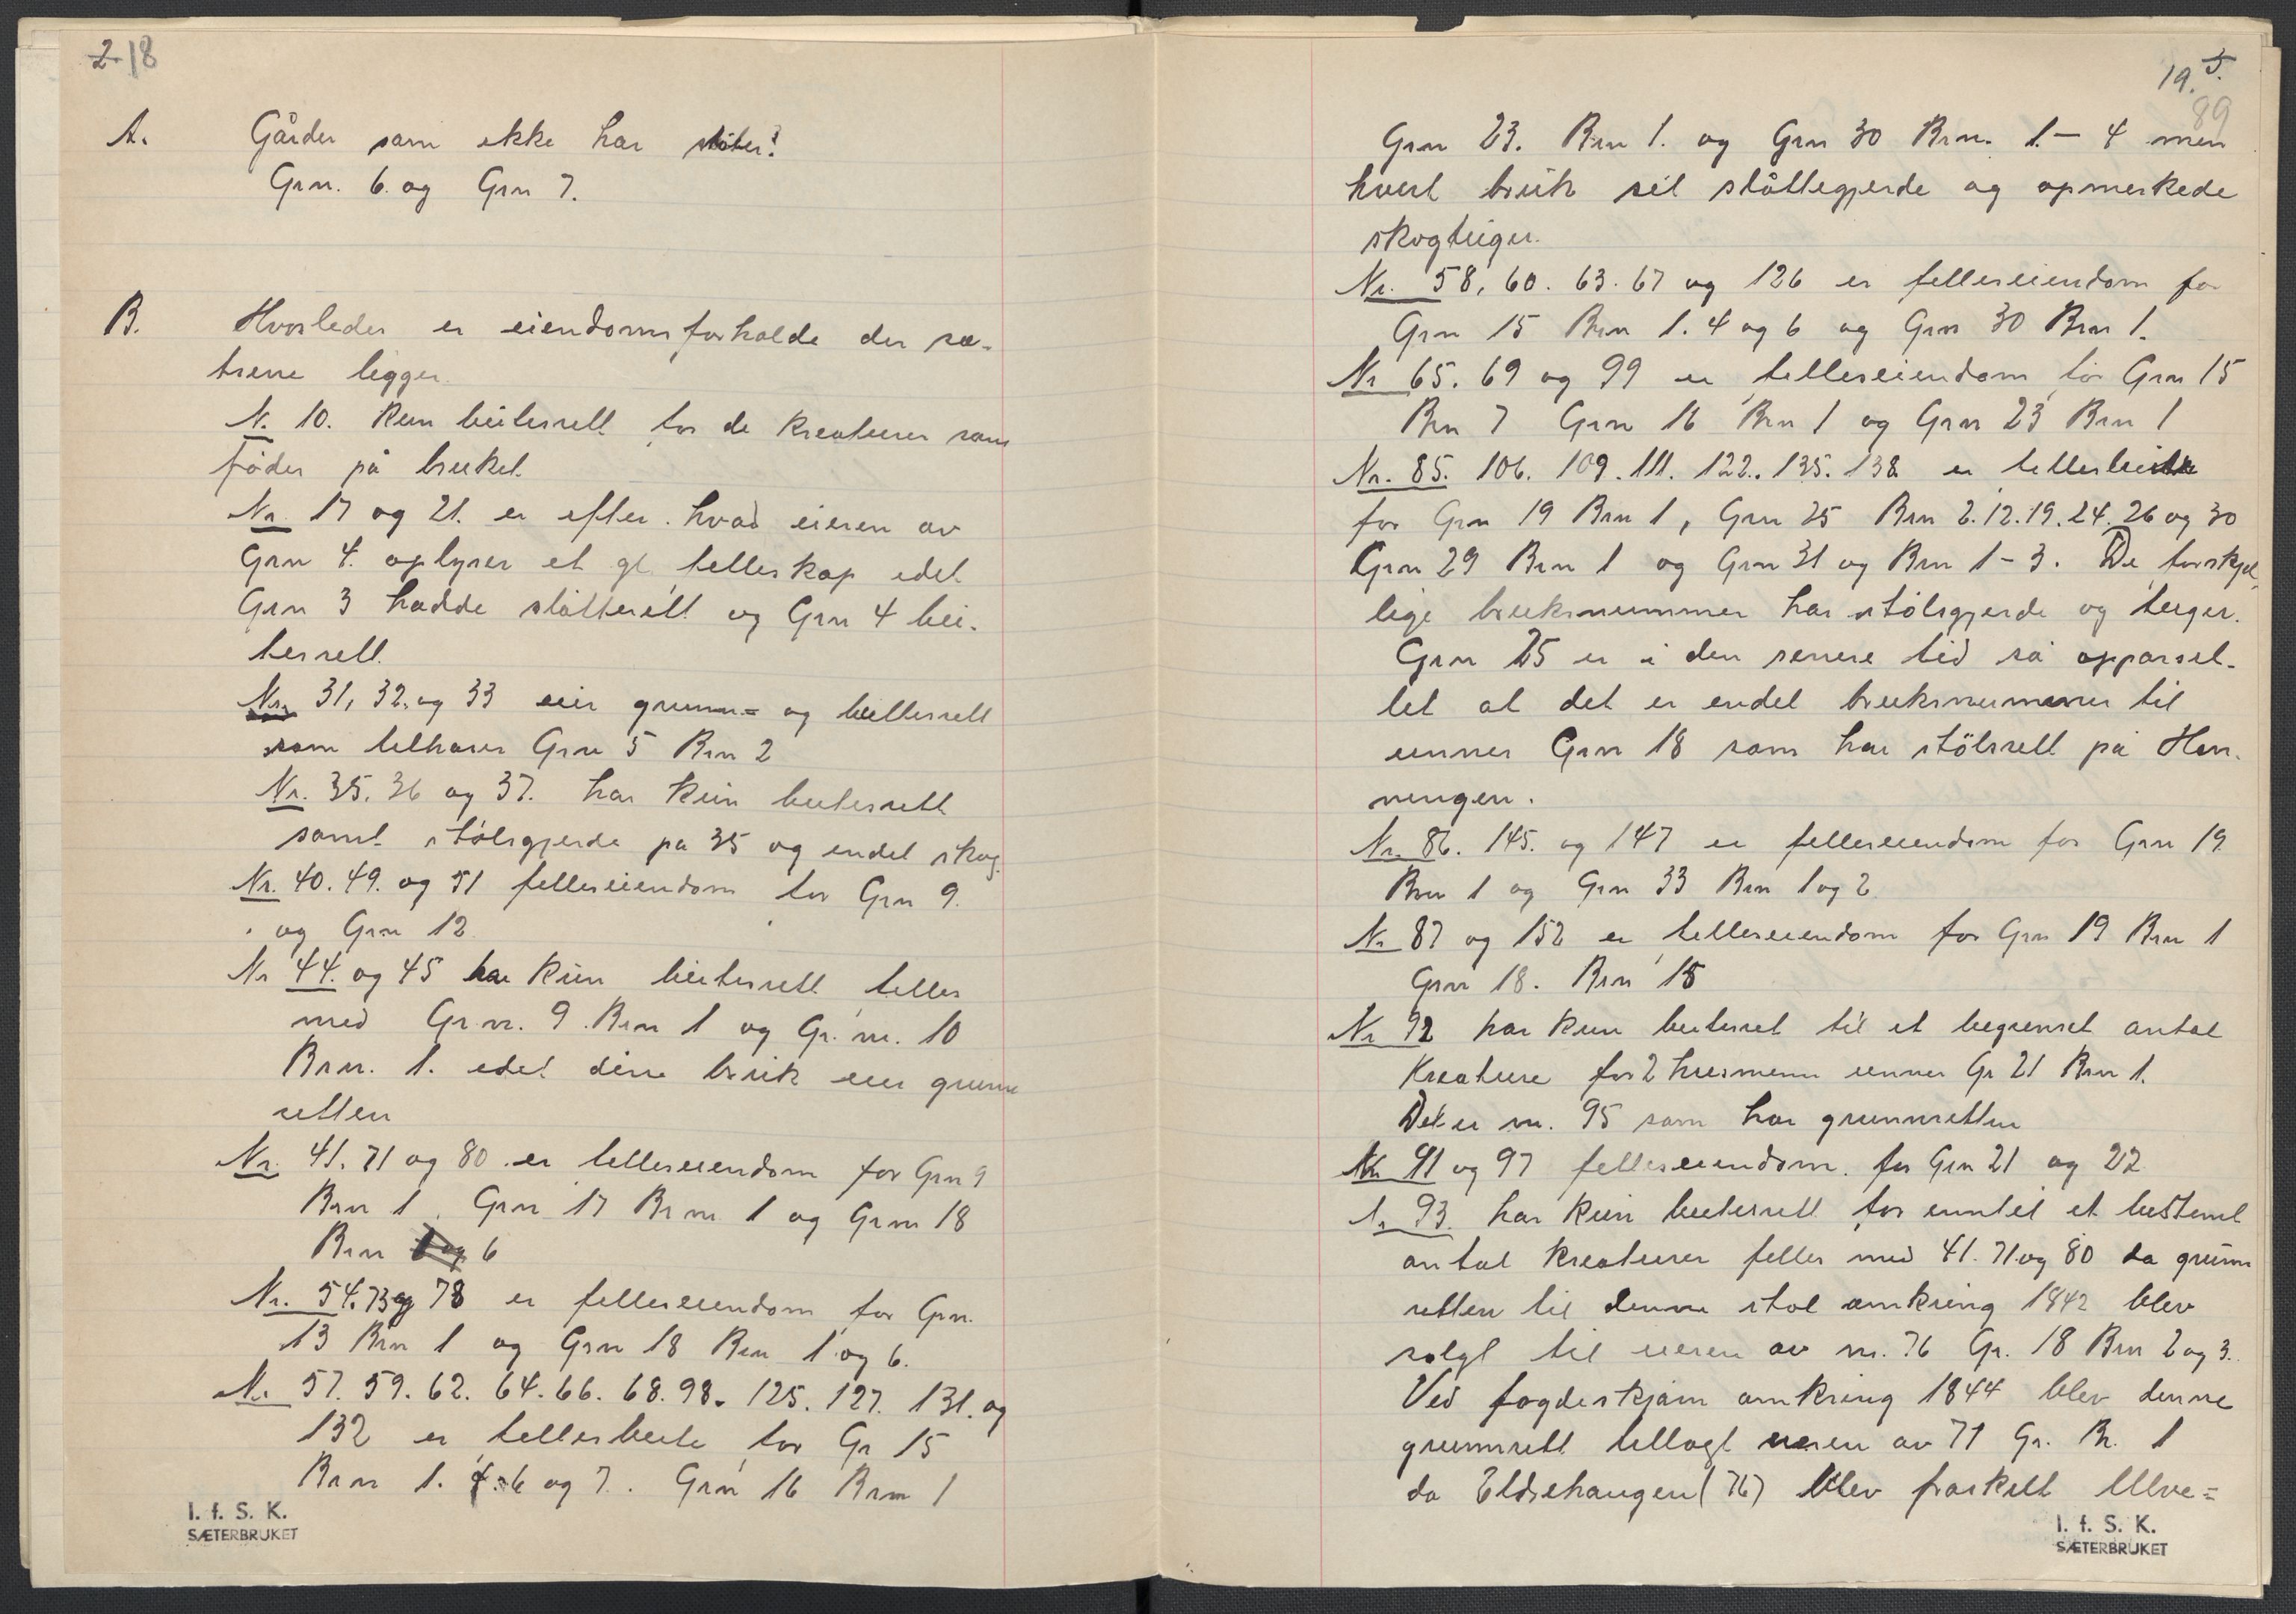 2. 18
A. Gårder som ikke har støler?
Grn. 6. og Grn 7.
B. Hvorledes er eiendomsforholde der sæ-
trene ligger.
N. 10. Kun beiterett for de kreaturer som
føder på bruket.
Nr. 17 og 21. er efter hvad eieren av
Grn 4. oplyser et gl. felleskap idet
Grn 3 hadde slåtterett og Grn 4 bei-
terett.
Nr. 31, 32. og 33 eier grunn= og beiterett
som tilhører Grn 5 Brn 2
Nr. 35. 36 og 37. har kun beiterett
samt stølsgjerde på 35 og endel skog.
Nr. 40. 49. og 51 felleseiendom for Grn 9.
og Grn 12
Nr 44. og 45 har kun beiterett felles
med Gr.nr. 9. Brn 1 og Gr. nr. 10
Brn. 1. idet disse bruk eier grunn
retten
Nr. 41. 71 og 80 er felleseiendom for Grn 9
Brn 1. Grn 17 Brn 1 og Grn 18
Brn 6
Nr. 54. 73 og 78 er felleseiendom for Grn.
13 Brn 1 og Grn 18 Brn 1 og 6.
Nr 57. 59. 62. 64. 66. 68. 98. 125. 127. 131. og
132 er fellesbeite for Gr 15
Brn 1. 4. 6 og 7. Grn 16 Brn 1
I. f. S. K.
SÆTERBRUKET
19. 5.
89
Grn 23. Brn 1. og Grn 30 Brn. 1 - 4 men
hvert bruk sit slåttegjerde og opmerkede
skogteiger.
Nr. 58, 60. 63. 67 og 126 er felleseiendom for
Grn 15 Brn 1. 4 og 6 og Grn 30 Brn 1.
Nr 65. 69 og 99 er felleseiendom for Grn 15
Brn 7 Grn 16 Brn 1 og Grn 23 Brn 1
Nr. 85. 106. 109. 111. 122. 135. 138 er fellesbeite
for Grn 19 Brn 1, Grn 25 Brn 2. 12. 19. 24. 26 og 30
Grn 29 Brn 1 og Grn 31 og Brn 1 - 3. De forskjel-
lige bruksnummer har stølsgjerde og teiger.
Grn 25 er i den senere tid så opparsel-
let at det er endel bruksnummer til
unner Grn 18 som har stølsrett på Hen-
ningen.
Nr. 86. 145. og 147 er felleseiendom for Grn 19.
Brn 1 og Grn 33 Brn 1 og 2
Nr 87 og 152 er felleseiendom for Grn 19 Brn 1
Grn 18. Brn 15
Nr 92 har kun beiteret til et begrenset antal
kreature for 2 husmenn unner Gr 21 Brn 1.
Det er nr. 95 som har grunnretten
Nr 91 og 97 felleseiendom for Grn 21 og 22
Nr 93. har kun beiterett for inntil et bestemt
antal kreaturer felles med 41. 71 og 80 da grunn
retten til denne støl omkring 1842 blev
solgt til eieren av nr. 76 Gr. 18 Brn 2 og 3.
Ved fogdeskjøn omkring 1844 blev denne
grunnrett tillagt eieren av 71 Gr. Br. 1
da Eldsehaugen (76) blev fraskilt Ulve=
I. f. S. K.
SÆTERBRUKET